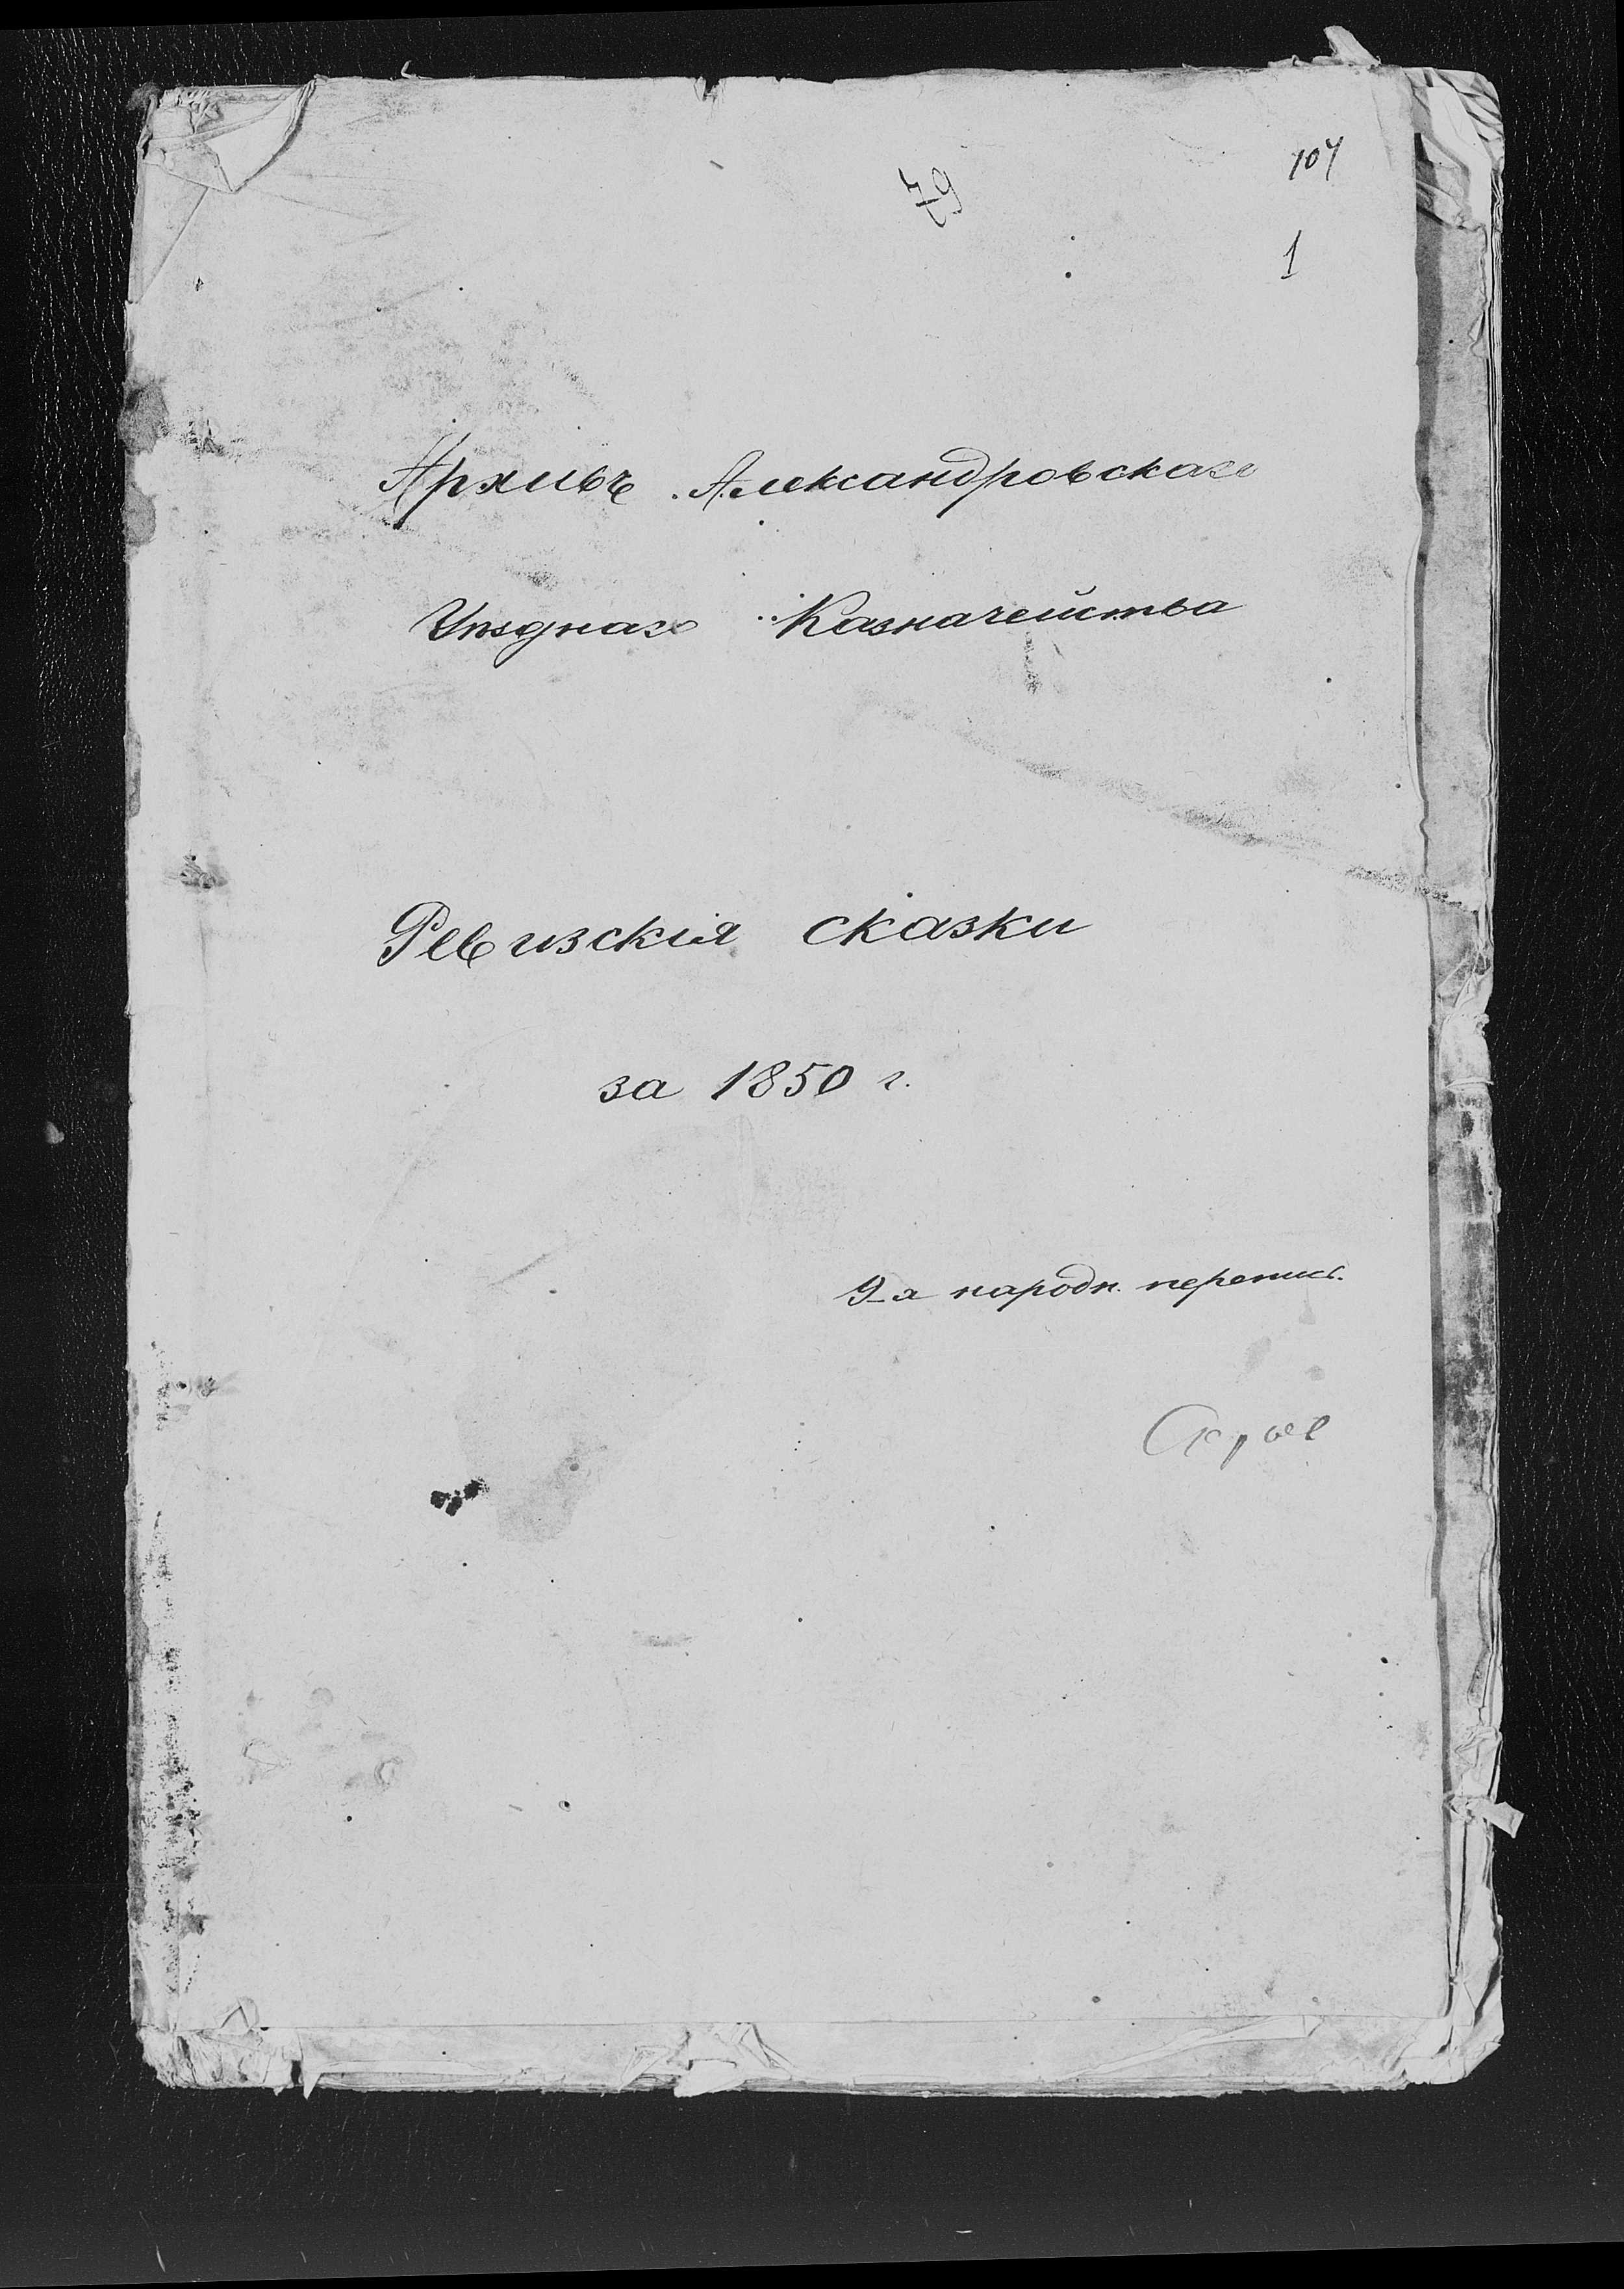 79
107
1
Архивъ Александровскаго
Уѣзднаго Казначейства
Ревизскія сказки
за 1850 г.
9-я народн. перепись.